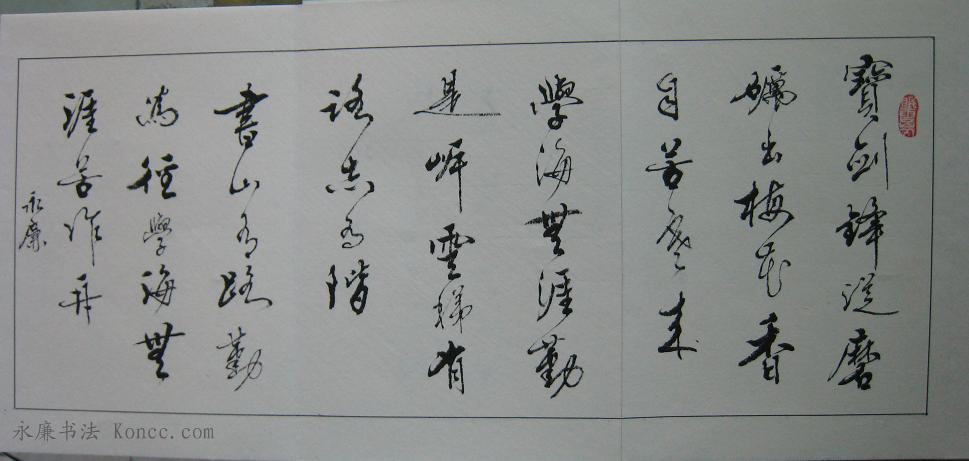 寶劍鋒從磨
礪出梅花香
自苦寒來
學海無涯勤
是岸雲梯有
路志為階
書山有路勤
為徑學海無
涯苦作舟
永廉
永廉书法 Koncc.com